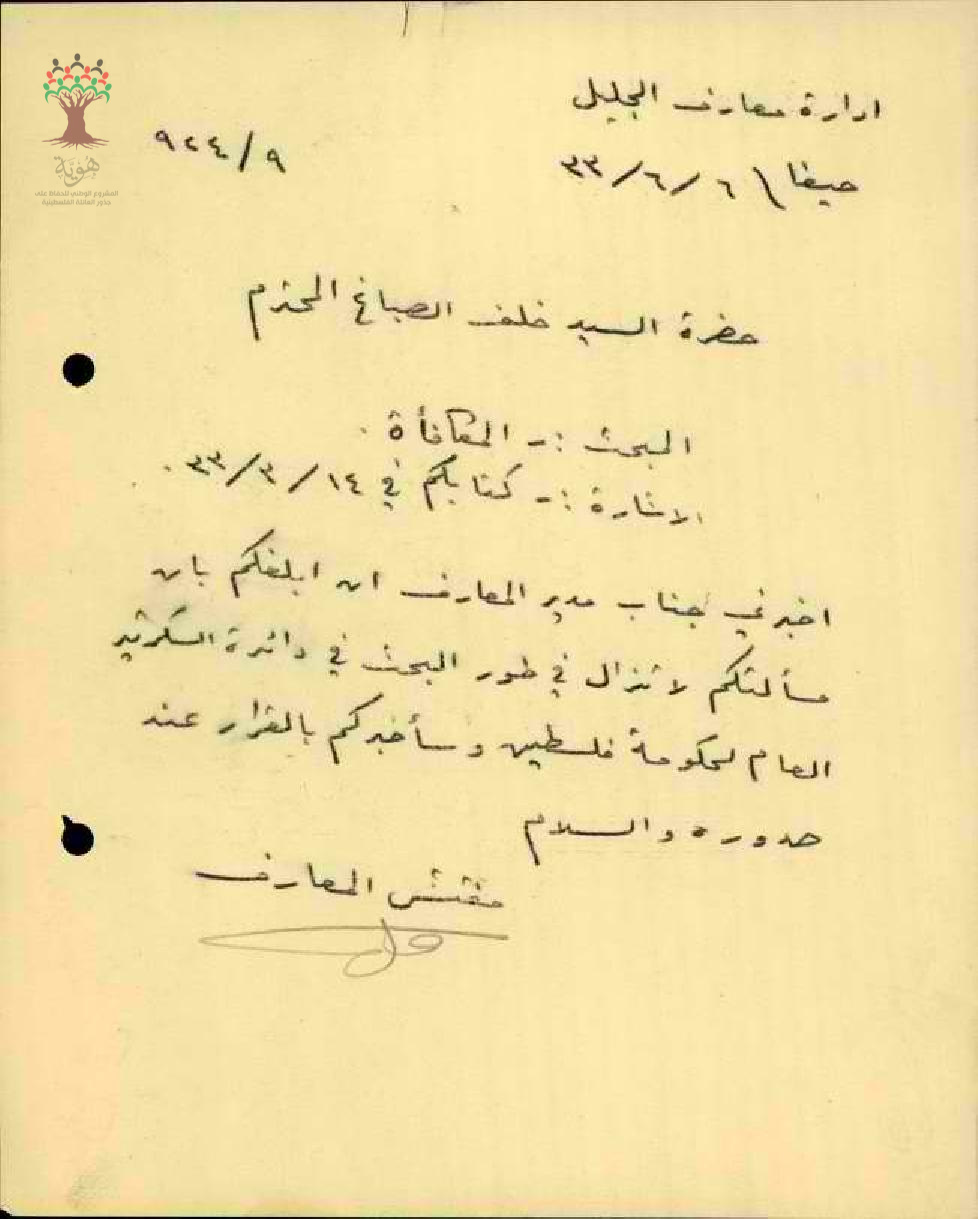 ادارة معارف الجليل
حيفا \ ٦/٦/٣٣
٩٢٤/٩
هوية
المشروع الوطني للحفاظ على
جذور العائلة الفلسطينية
حضرة السيد خلف الصباغ المحترم
البحث :- المكافأة .
الاشارة :- كتابكم في ١٤/٣/٣٣ .
اخبرني جناب مدير المعارف ان ابلغكم بان
مسألتكم لا تزال في طور البحث في دائرة السكرتير
العام لحكومة فلسطين وسأخبركم بالقرار عند
صدوره والسلام
مفتش المعارف